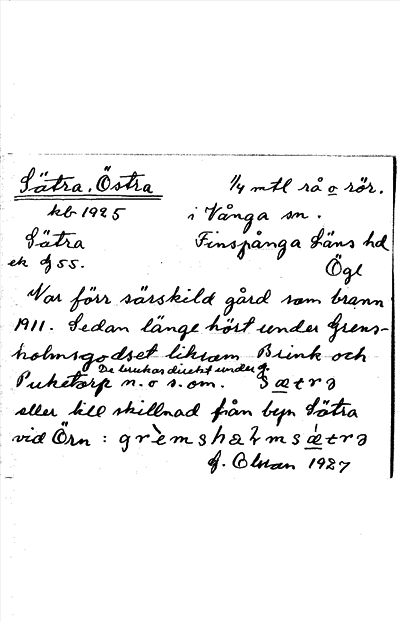 Sätra, Östra 1/4 mtl rå o rör.
kb 1925 i Vånga sn.
Sätra Finspånga Läns hd
ek bl 55. Ögl
Var förr särskild gård som brann
1911. Sedan länge hört under Grens-
holmsgodset liksom Brink och
De brukas direkt under g.
Puketorp n. o s. om. sætrə
eller till skillnad från byn Sätra
vid Örn : grèmshalmsǽtrə
G. Olsson 1927